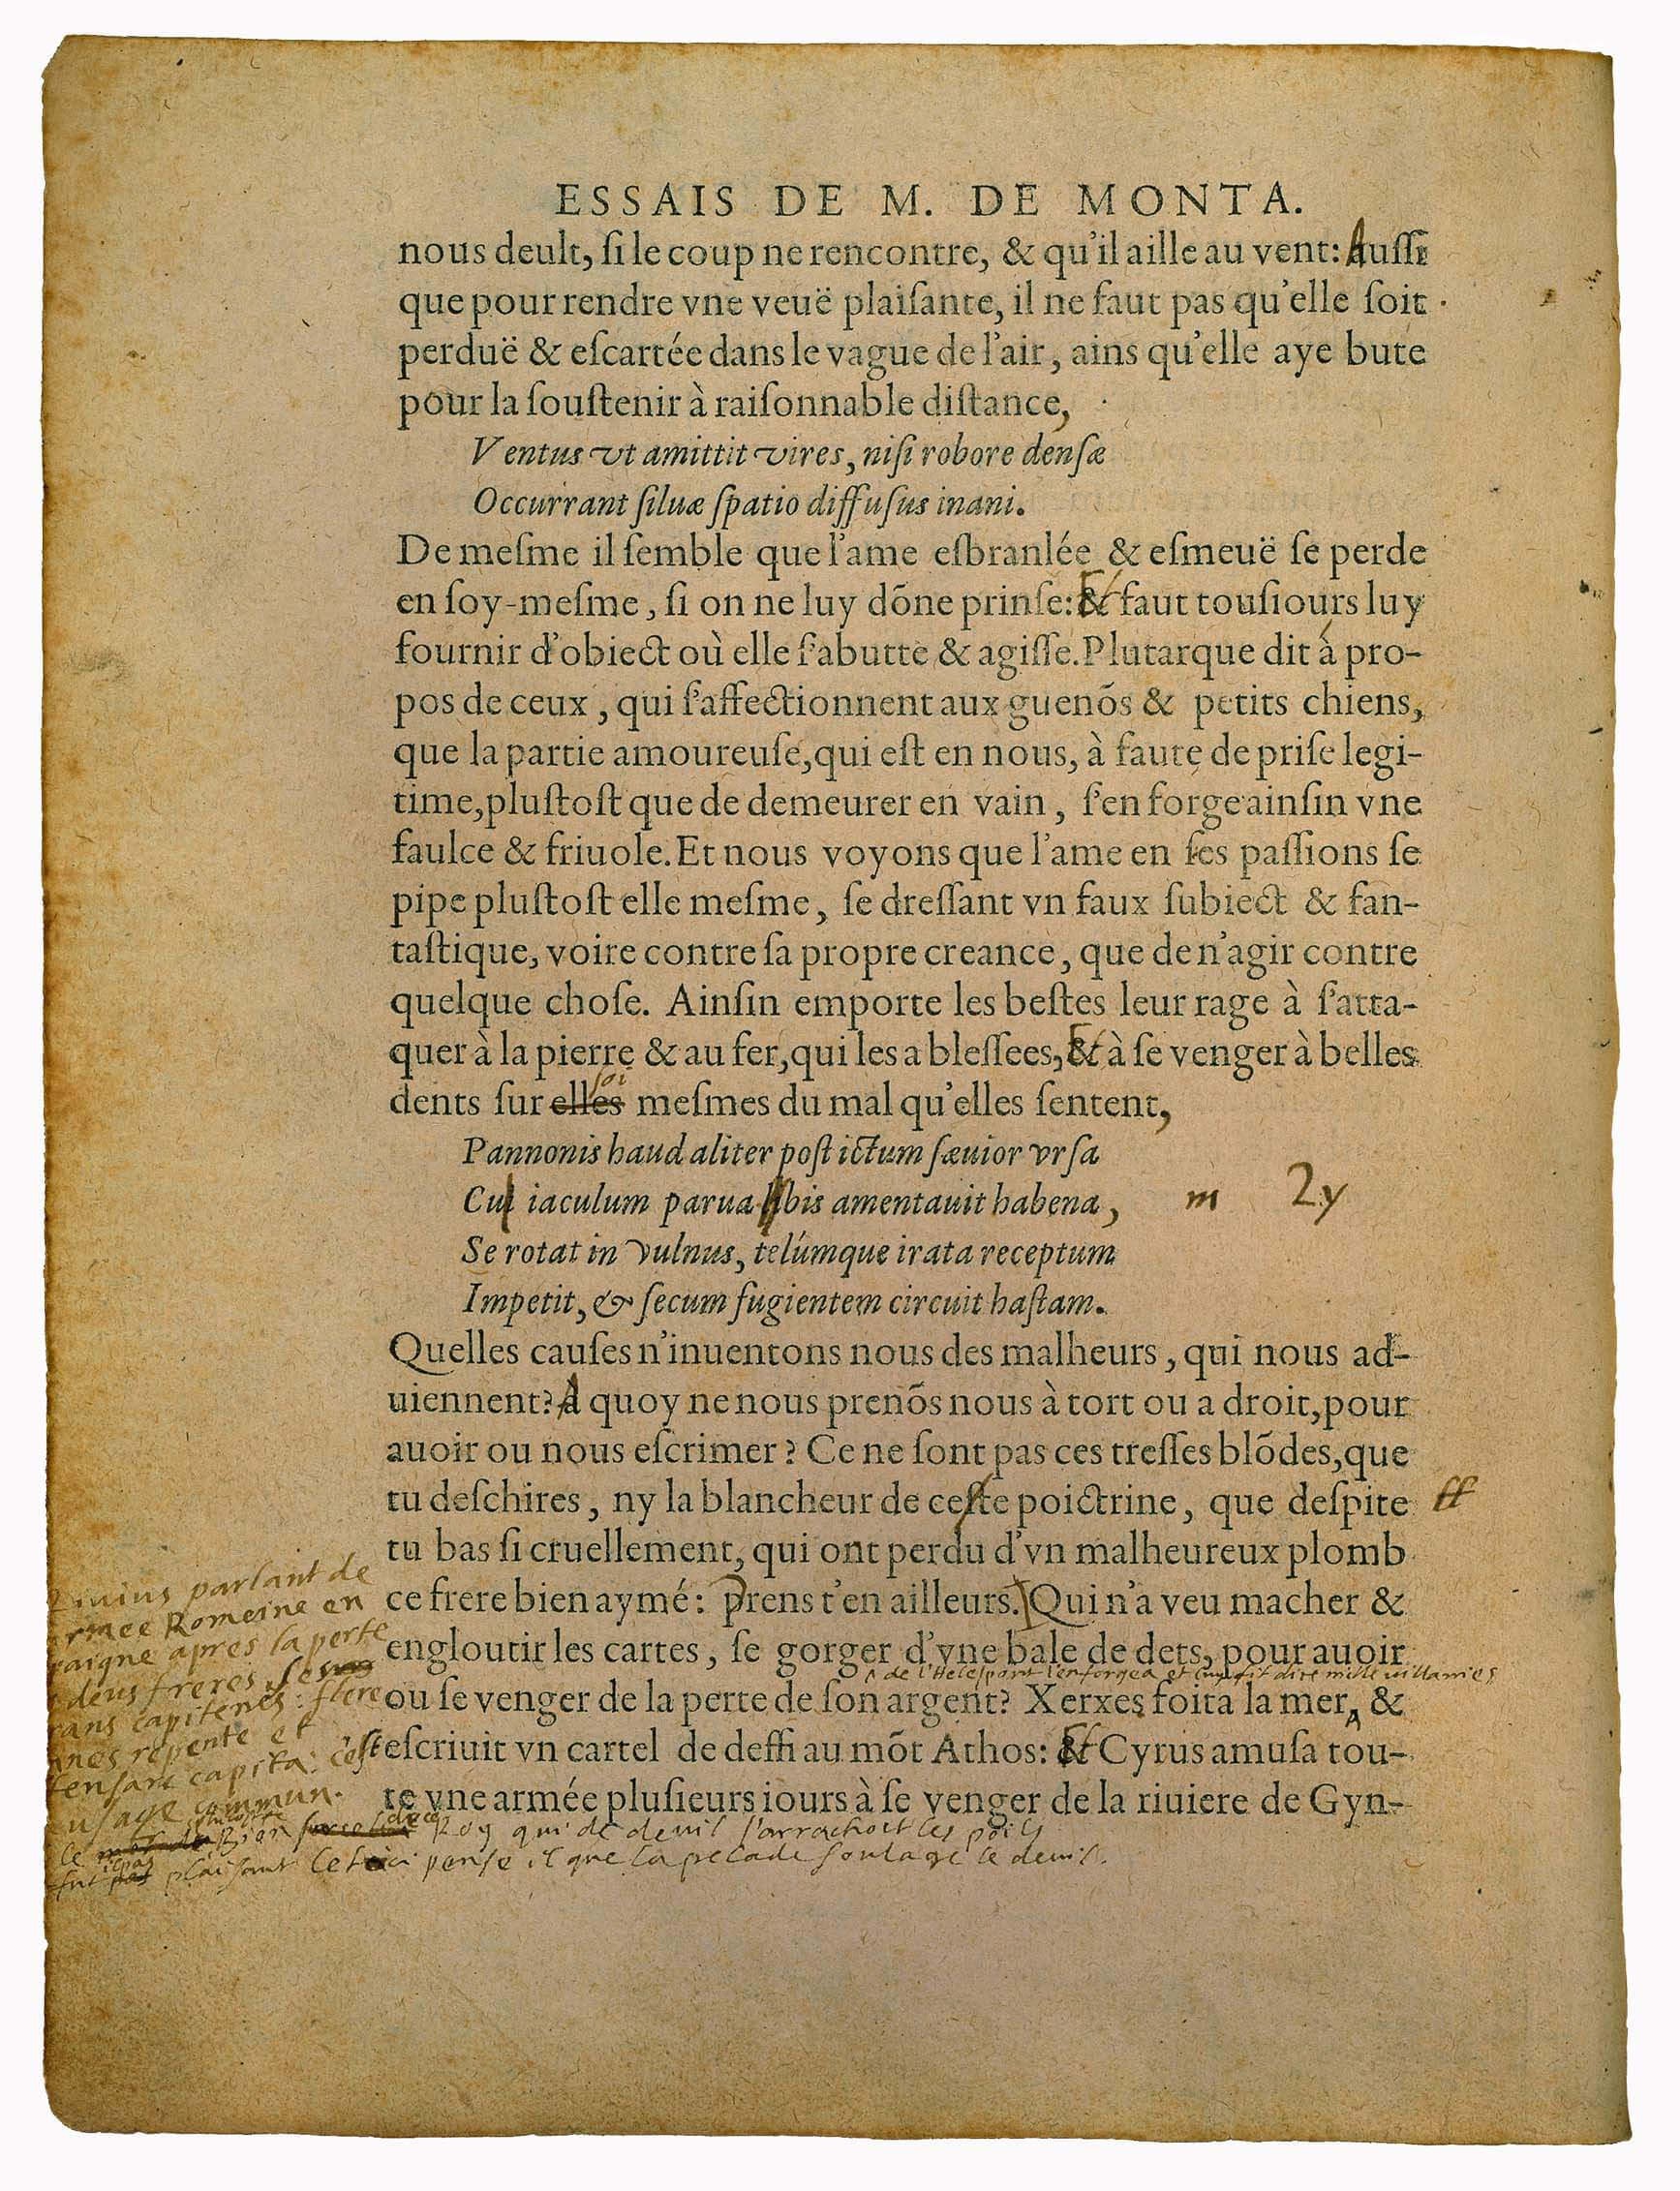 ESSAIS DE M. DE MONTA.
nous deult, ſi le coup ne rencontre, & qu'il aille au vent: Auſſi
que pour rendre vne veuë plaiſante, il ne faut pas qu'elle ſoit
perduë & eſcartée dans le vague de l'air, ains qu'elle aye bute
pour la ſouſtenir à raiſonnable diſtance,
Ventus vt amittit vires, niſi robore denſæ
Occurrant ſiluæ ſpatio diffuſus inani.
De meſme il ſemble que l'ame eſbranlée & eſmeuë ſe perde
en ſoy-meſme, ſi on ne luy dõne prinſe: Et faut touſiours luy
fournir d'obiect où elle ſ'abutte & agiſſe. Plutarque dit à pro-
pos de ceux, qui ſ'affectionnent aux guenõs & petits chiens,
que la partie amoureuſe, qui eſt en nous, à faute de priſe legi-
time, pluſtoſt que de demeurer en vain, ſ'en forge ainſin vne
faulce & friuole. Et nous voyons que l'ame en ſes paſſions ſe
pipe pluſtoſt elle meſme, ſe dreſſant vn faux ſubiect & fan-
taſtique, voire contre ſa propre creance, que de n'agir contre
quelque choſe. Ainſin emporte les beſtes leur rage à ſ'atta-
quer à la pierre & au fer, qui les a bleſſees, Et à ſe venger à belles
soi
dents ſur elles meſmes du mal qu'elles ſentent,
Pannonis haud aliter poſt ictum ſæuior vrſa
Cui iaculum parua libis amentauit habena, m 2y
Se rotat in vulnus, telúmque irata receptum
Impetit, & ſecum fugientem circuit haſtam.
Quelles cauſes n'inuentons nous des malheurs, qui nous ad-
uiennent? A quoy ne nous prenõs nous à tort ou a droit, pour
auoir ou nous eſcrimer? Ce ne ſont pas ces treſſes blõdes, que
tu deſchires, ny la blancheur de ceſte poictrine, que deſpite ff
tu bas ſi cruellement, qui ont perdu d'vn malheureux plomb
ce frere bien aymé: prens t'en ailleurs. Qui n'a veu macher &
engloutir les cartes, ſe gorger d'vne bale de dets, pour auoir
de l'Helespont l'enforgea et luy fit dire mille villanies
ou ſe venger de la perte de ſon argent? Xerxes foita la mer, &
eſcriuit vn cartel de deffi au mõt Athos: Et Cyrus amuſa tou-
te vne armée pluſieurs iours à ſe venger de la riuiere de Gyn-
Liuius parlant de
rmee Romeine en
aigne apres la perte
deus freres ses
rans capitenes: flere
nes repente et
ffensare capita: c'est
usage commun.
le philosophe Bion de ce Roy qui de deuil s'arrachoit les poils
fut il pas plaisant Cetuici pense il que la pelade soulage le deuil.